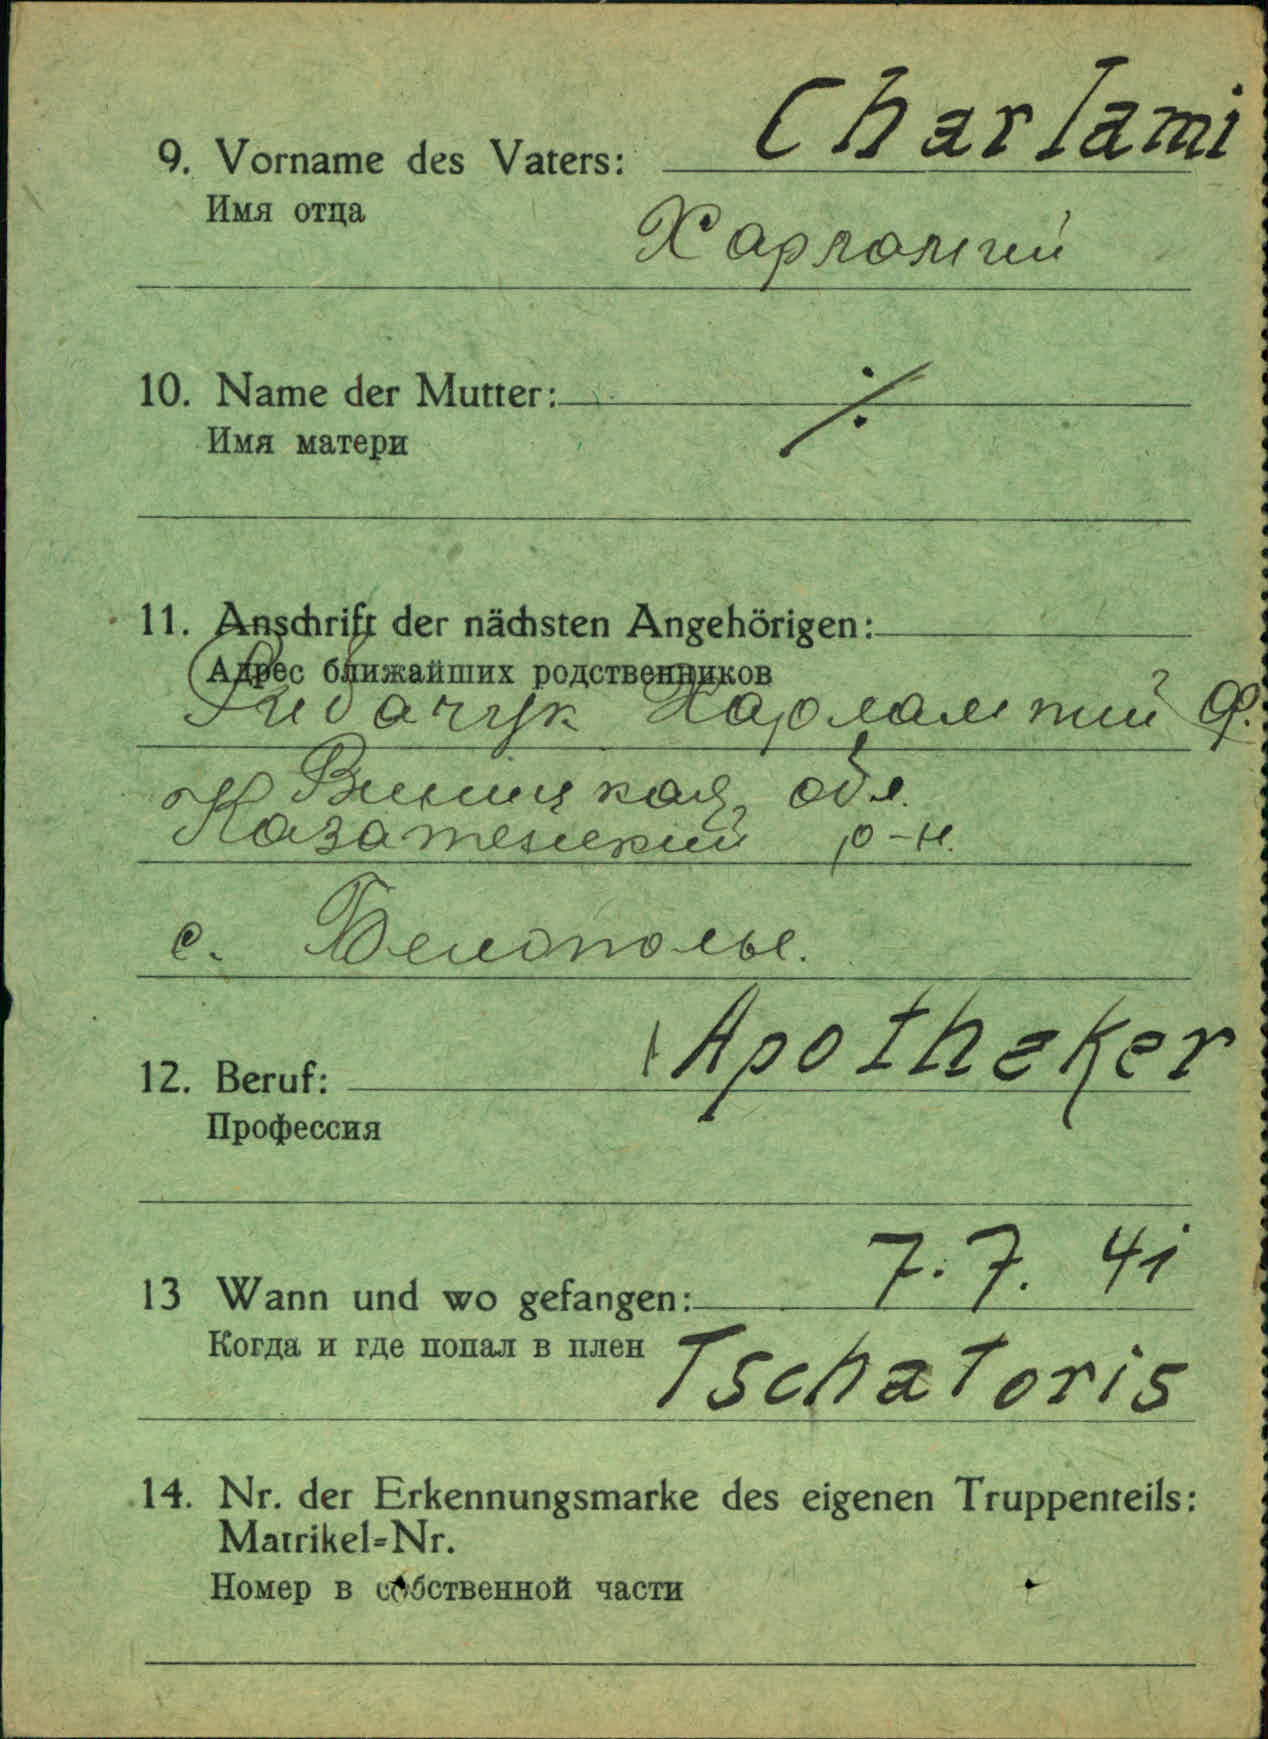 9. Vorname des Vaters: Charlami
Имя отца
Харламгий
10. Name der Mutter: ⁒
Имя матери
11. Anschrift der nächsten Angehörigen:
Адрес ближайших родственников
Рибачук Харлампий Ф.
Виницкая обл.
Казатенский р-н.
с. Белополье.
12. Beruf: Apotheker
Профессия
13 Wann und wo gefangen: 7.7.41
Когда и где попал в плен Tschatoris
14. Nr. der Erkennungsmarke des eigenen Truppenteils:
Matrikel=Nr.
Номер в собственной части